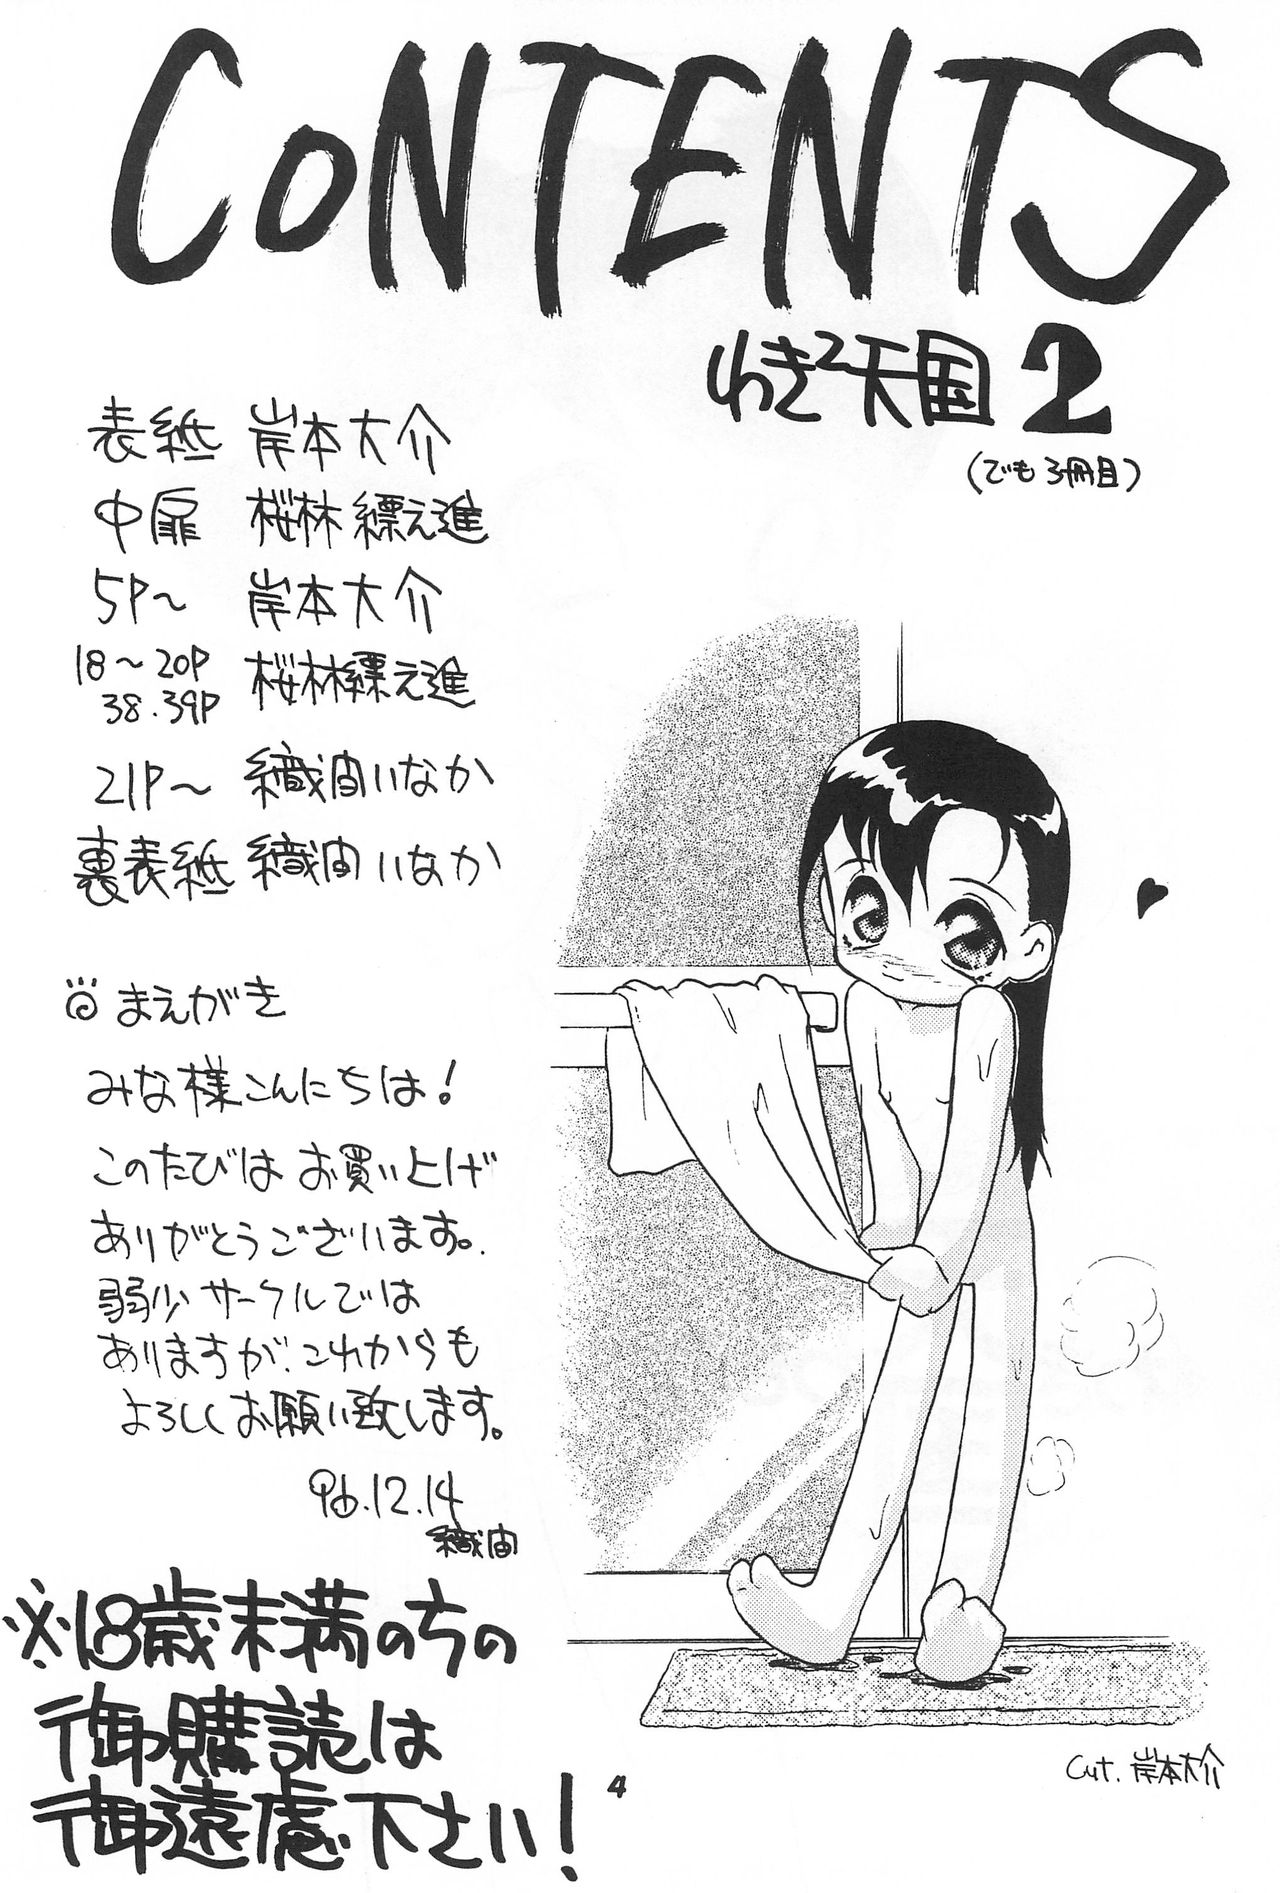 CONTENTS
わき²天国 2
(でも3冊目)
表紙 岸本大介
中扉 桜林縹え進
5P〜 岸本大介
18〜20P 桜林縹え進
38.39P
21P〜 織宙いなか
裏表紙 織宙いなか
まえがき
みな様こんにちは!
このたびは お買い上げ
ありがとうございます。
弱少サークルでは
ありますが、これからも
よろしくお願い致します。
96.12.14
織宙
※18歳未満の方の
御購読は
御遠慮下さい!
4
Cut. 岸本大介